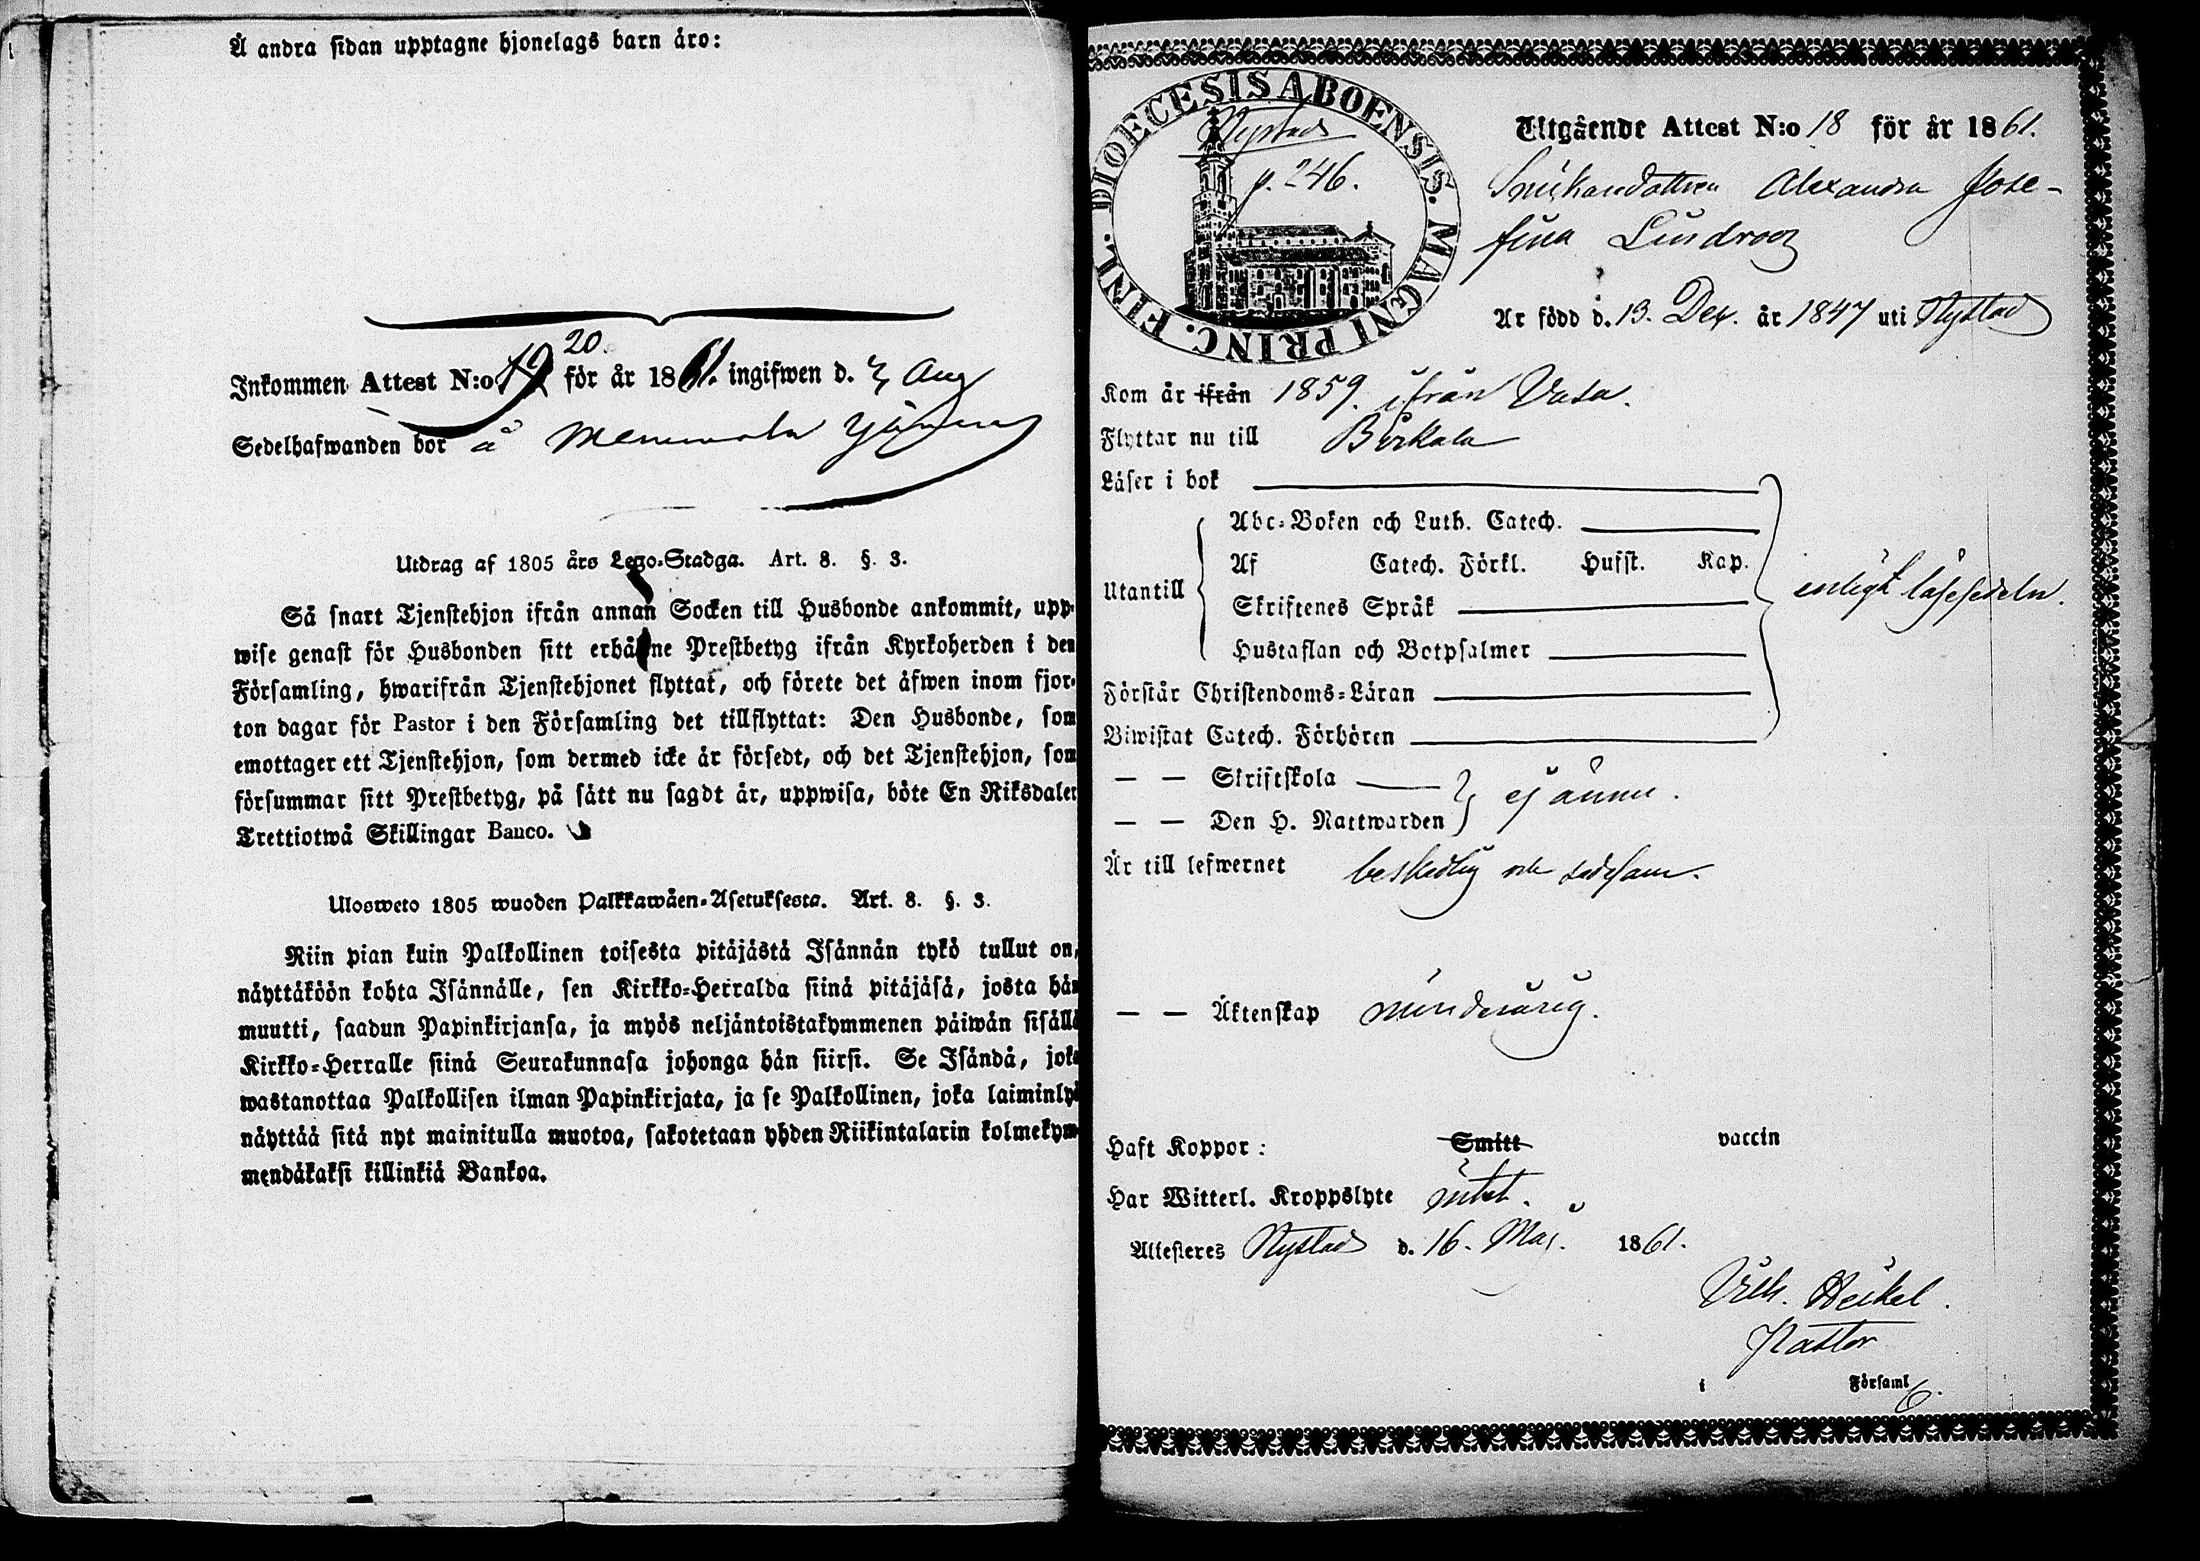 Å andra sidan upptagne hjonelags barn äro:
20.
Inkommen Attest N:o 19 för år 1861. ingifwen d. 3 Aug
Sedelhafwanden bor å
Utdrag af 1805 års Lego-Stadga. Art. 8. §. 3.
Så snart Tjenstehjon ifrån annan Socken till Husbonde ankommit, upp-
wise genast för Husbonden sitt erhållne Prestbetyg ifrån Kyrkoherden i den
Församling, hwarifrån Tjenstehjonet flyttat, och förete det äfwen inom fjor-
ton dagar för Pastor i den Församling det tillflyttat: Den Husbonde, som
emottager ett Tjenstehjon, som dermed icke är försedt, och det Tjenstehjon, som
försummar sitt Prestbetyg, på sätt nu sagdt är, uppwisa, böte En Riksdaler
Trettiotwå Skillingar Banco.
Ulosweto 1805 wuoden Palkkawäen-Asetuksesta. Art. 8. §. 3.
Niin pian kuin Palkollinen toisesta pitäjästä Isännän tykö tullut on,
näyttäköön kohta Isännälle, sen Kirkko-Herralda siinä pitäjäsä, josta hän
muutti, saadun Papinkirjansa, ja myös neljäntoistakymmenen päiwän sisällä
Kirkko-Herralle siinä Seurakunnasa johonga hän siirsi. Se Isändä, joka
wastanottaa Palkollisen ilman Papinkirjata, ja se Palkollinen, joka laiminlyö
näyttää sitä nyt mainitulla muotoa, sakotetaan yhden Riikintalarin kolmekym-
mendäkaksi killinkiä Bankoa.
DIOECESIS ABOENSIS. MAGNI PRINC. FINL.
Nystad
p. 246.
Utgående Attest N:o 18 för år 1861.
Snickaredottren Alexandra Jose-
fina Lindroos
Är född d. 13. Dec. år 1847 uti Nystad
Kom år ifrån 1859. ifrån Vasa.
Flyttar nu till Birkala
Läser i bok
Utantill
Abc-Boken och Luth. Catech.
Af Catech. Förkl. Hufst. Kap.
Skriftenes Språk
Hustaflan och Botpsalmer
enligt läsesedeln.
Förstår Christendoms-Läran
Biwistat Catech. Förhören
— — Skriftskola
— — Den H. Nattwarden
ej ännu.
Är till lefwernet beskedlig och sedesam.
— — Äktenskap minderårig.
Haft Koppor: Smitt vaccin
Har Witterl. Kroppslyte intet.
Attesteres Nystad d. 16. Maj. 1861.
Vilh. Heikel.
Pastor
i Församl
6.